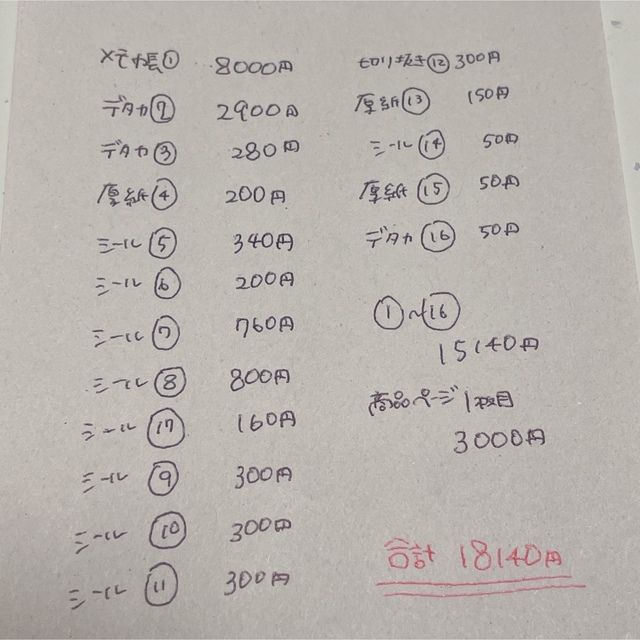 メモ帳① 8000円
デタカ② 2900円
デタカ③ 280円
厚紙④ 200円
シール⑤ 340円
シール⑥ 200円
シール⑦ 760円
シール⑧ 800円
シール⑰ 160円
シール⑨ 300円
シール⑩ 300円
シール⑪ 300円
切り抜き⑫ 300円
厚紙⑬ 150円
シール⑭ 50円
厚紙⑮ 50円
デタカ⑯ 50円
①〜⑯
15140円
商品ページ1枚目
3000円
合計 18140円